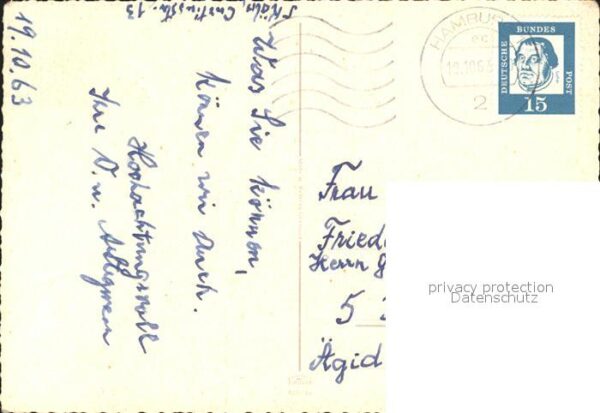 19.10.63
Was Sie können,
können wir auch.
Hochachtungsvoll
Ihre D. u.
HAMBURG
19.10.63
2
DEUTSCHE BUNDESPOST
15
Frau
Friede
Herrn
5
Ägid
privacy protection
Datenschutz